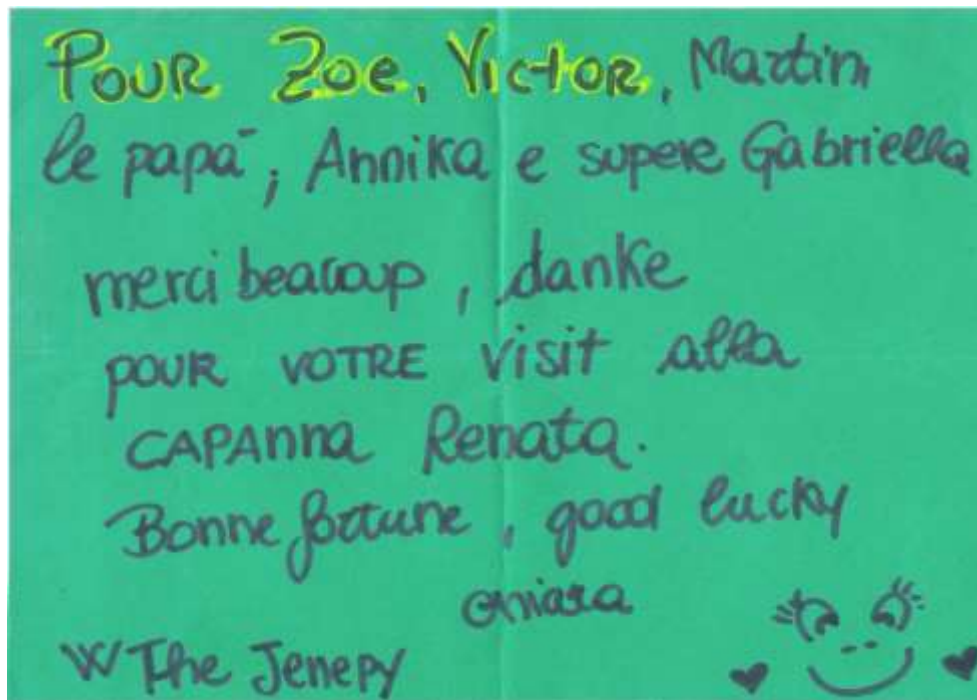 Pour Zoe, Victor, Martin,
le papà, Annika e supere Gabriella
merci beacoup, danke
pour votre visit alla
CAPAnna Renata.
Bonne fortune, good lucky
Chiara
W The Jenepy